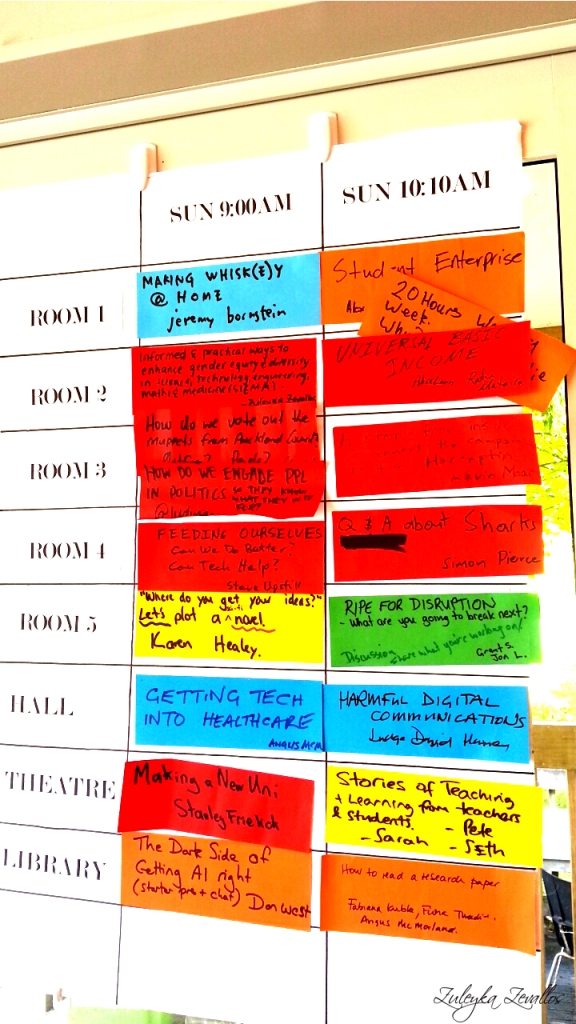 SUN 9:00AM
SUN 10:10AM
ROOM 1
MAKING WHISK(E)Y
@ HOME
jeremy bornstein
Student Enterprise
20 Hours
Week.
ROOM 2
Informed & practical ways to
enhance gender equity & diversity
in science, technology, engineering,
maths & medicine (STEMM)
- Zuleyka Zevallos
UNIVERSAL BASIC
INCOME
ROOM 3
How do we vote out the
muppets from Auckland Council
HOW DO WE ENGAGE PPL
IN POLITICS SO THEY KNOW
WHAT THEY VOTE
FOR?
Kevin
ROOM 4
FEEDING OURSELVES
Can We Do Better?
Can Tech Help?
Steve Upstill
Q & A about Sharks
Simon Pierce
ROOM 5
"Where do you get your ideas?"
Let's plot a novel
Karen Healey.
RIPE FOR DISRUPTION
- What are you going to break next?
Discussion, share what you're working on!
Grant S.
Jon L.
HALL
GETTING TECH
INTO HEALTHCARE
ANGUS MCM
HARMFUL DIGITAL
COMMUNICATIONS
Judge David
THEATRE
Making a New Uni
Stanley
Stories of Teaching
+ Learning from teachers
& students.
- Pete
- Sarah - Seth
LIBRARY
The Dark Side of
Getting AI right
(starter pres + chat) Don West
How to read a research paper
Fabiana Kubke,
Angus McMorland.
Zuleyka Zevallos